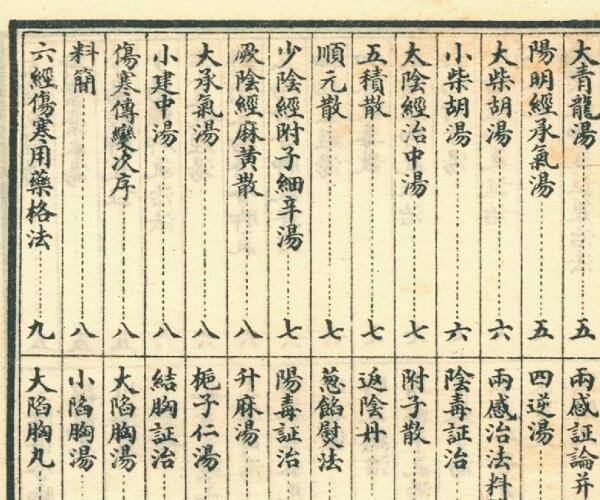 大青龍湯五
陽明經承氣湯五
大柴胡湯六
小柴胡湯六
太陰經治中湯七
五積散七
順元散七
少陰經附子細辛湯七
厥陰經麻黃散八
大承氣湯八
小建中湯八
傷寒傳變次序八
料簡八
六經傷寒用藥格法九
兩感証論并
四逆湯
兩感治法料
陰毒証治
附子散
返陰丹
葱餡熨法
陽毒証治
升麻湯
梔子仁湯
結胸証治
大陷胸湯
小陷胸湯
大陷胸丸